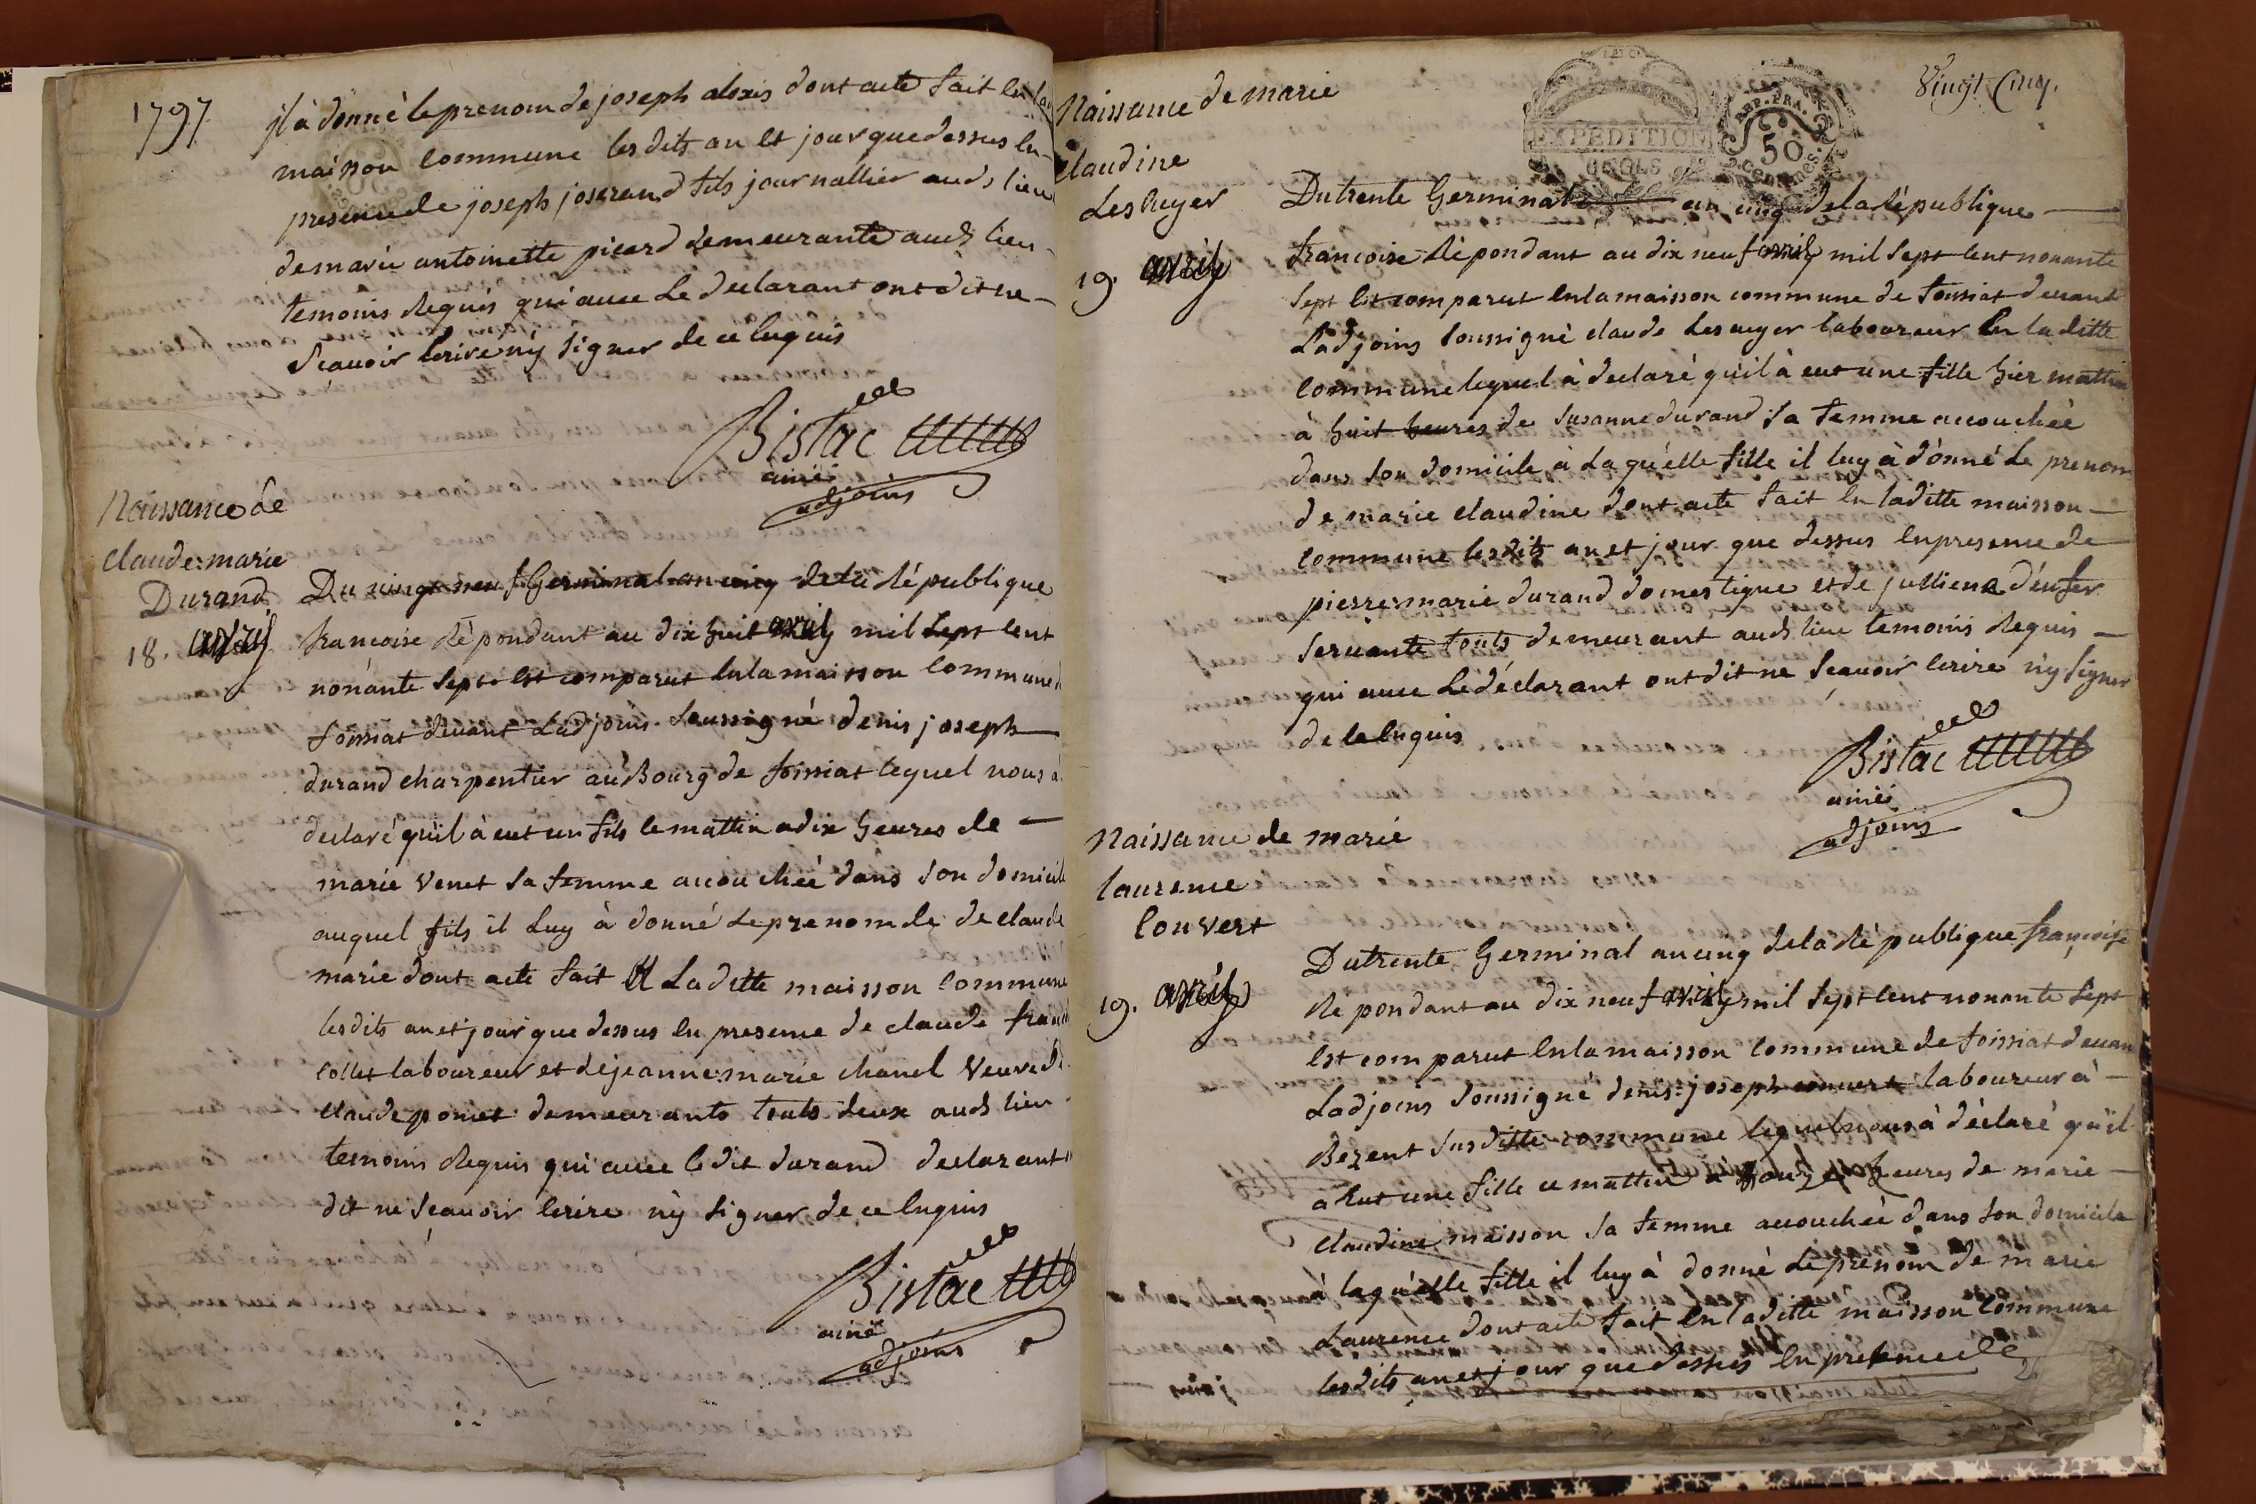 1797
jl à donné le prenom de joseph alexis dont acte fait en la
maisson commune les dits an et jour que dessus en
presence de joseph joserand fils journallier auds lieu
de marie antoinette picard demeurante auds lieu
temoins requis qui avec le declarant ont dit ne
scavoir ecrire n'y signer de ce enquis
Bistac
ainé
adjoins
Naissance de
claude marie
Durand
18. avril
Du vingt neuf Germinal an cinq de la république
francoise répondant au dix huit avril mil sept cent
nonante sept est comparut en la maisson commune d
foissiat devant Ladjoins soussigné denis joseph
durand charpentier au Bourg de foissiat lequel nous a
declaré qu'il à eut un fils ce mattin a dix heures de
marie venet sa femme accouchée dans son domicile
auquel fils il luy à donné le prenom de de claude
marie dont acte fait en La ditte maisson commune
les dits an et jour que dessus en presence de claude
collet laboureur et de jeanne marie chanel veuve de
claude poncet demeurants touts deux auds lieu
temoins requis qui avec le dit durand declarant
dit ne scavoir ecrire n'y signer de ce enquis
Bistac
ainé
adjoins
Vingt Cinq.
EXPEDITION
REP. FRA.
50
Centimes
Naissance de marie
claudine
Lescuyer
19. avril
Du trente Germinal an cinq de la république
francoise répondant au dix neuf avril mil sept cent nonante
sept est comparut en la maisson commune de foissiat devant
Ladjoins soussigné claude Lescuyer laboureur en la ditte
commune lequel à declaré qu'il à eut une fille hier mattin
à huit heures de susanne durand sa femme accouchée
dans son domicile à La qu'elle fille il luy à donné le prenom
de marie claudine dont acte fait en laditte maisson
commune les dits an et jour que dessus en presence de
pierre marie durand domestique et de
servante touts demeurant auds lieu temoins requis
qui avec le déclarant ont dit ne scavoir ecrire n'y signer
de ce enquis
Bistac
ainé
adjoins
Naissance de marie
laurence
Convert
19. avril
Du trente Germinal an cinq de la république françoise
répondant au dix neuf avril mil sept cent nonante sept
est comparut en la maisson commune de foissiat devan
Ladjoins soussigné denis joseph convert laboureur à
Bezent susditte commune lequel nous à déclaré qu'il
a eut une fille ce mattin à heures de marie
claudine maisson sa femme accouchée dans son domicile
à laqu'elle fille il luy à donné le prenom de marie
Laurence dont acte fait en laditte maisson commune
les dits an et jour que dessus en presence de